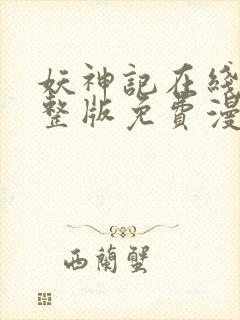 妖神記在綫
整版免費漫
西蘭蟹